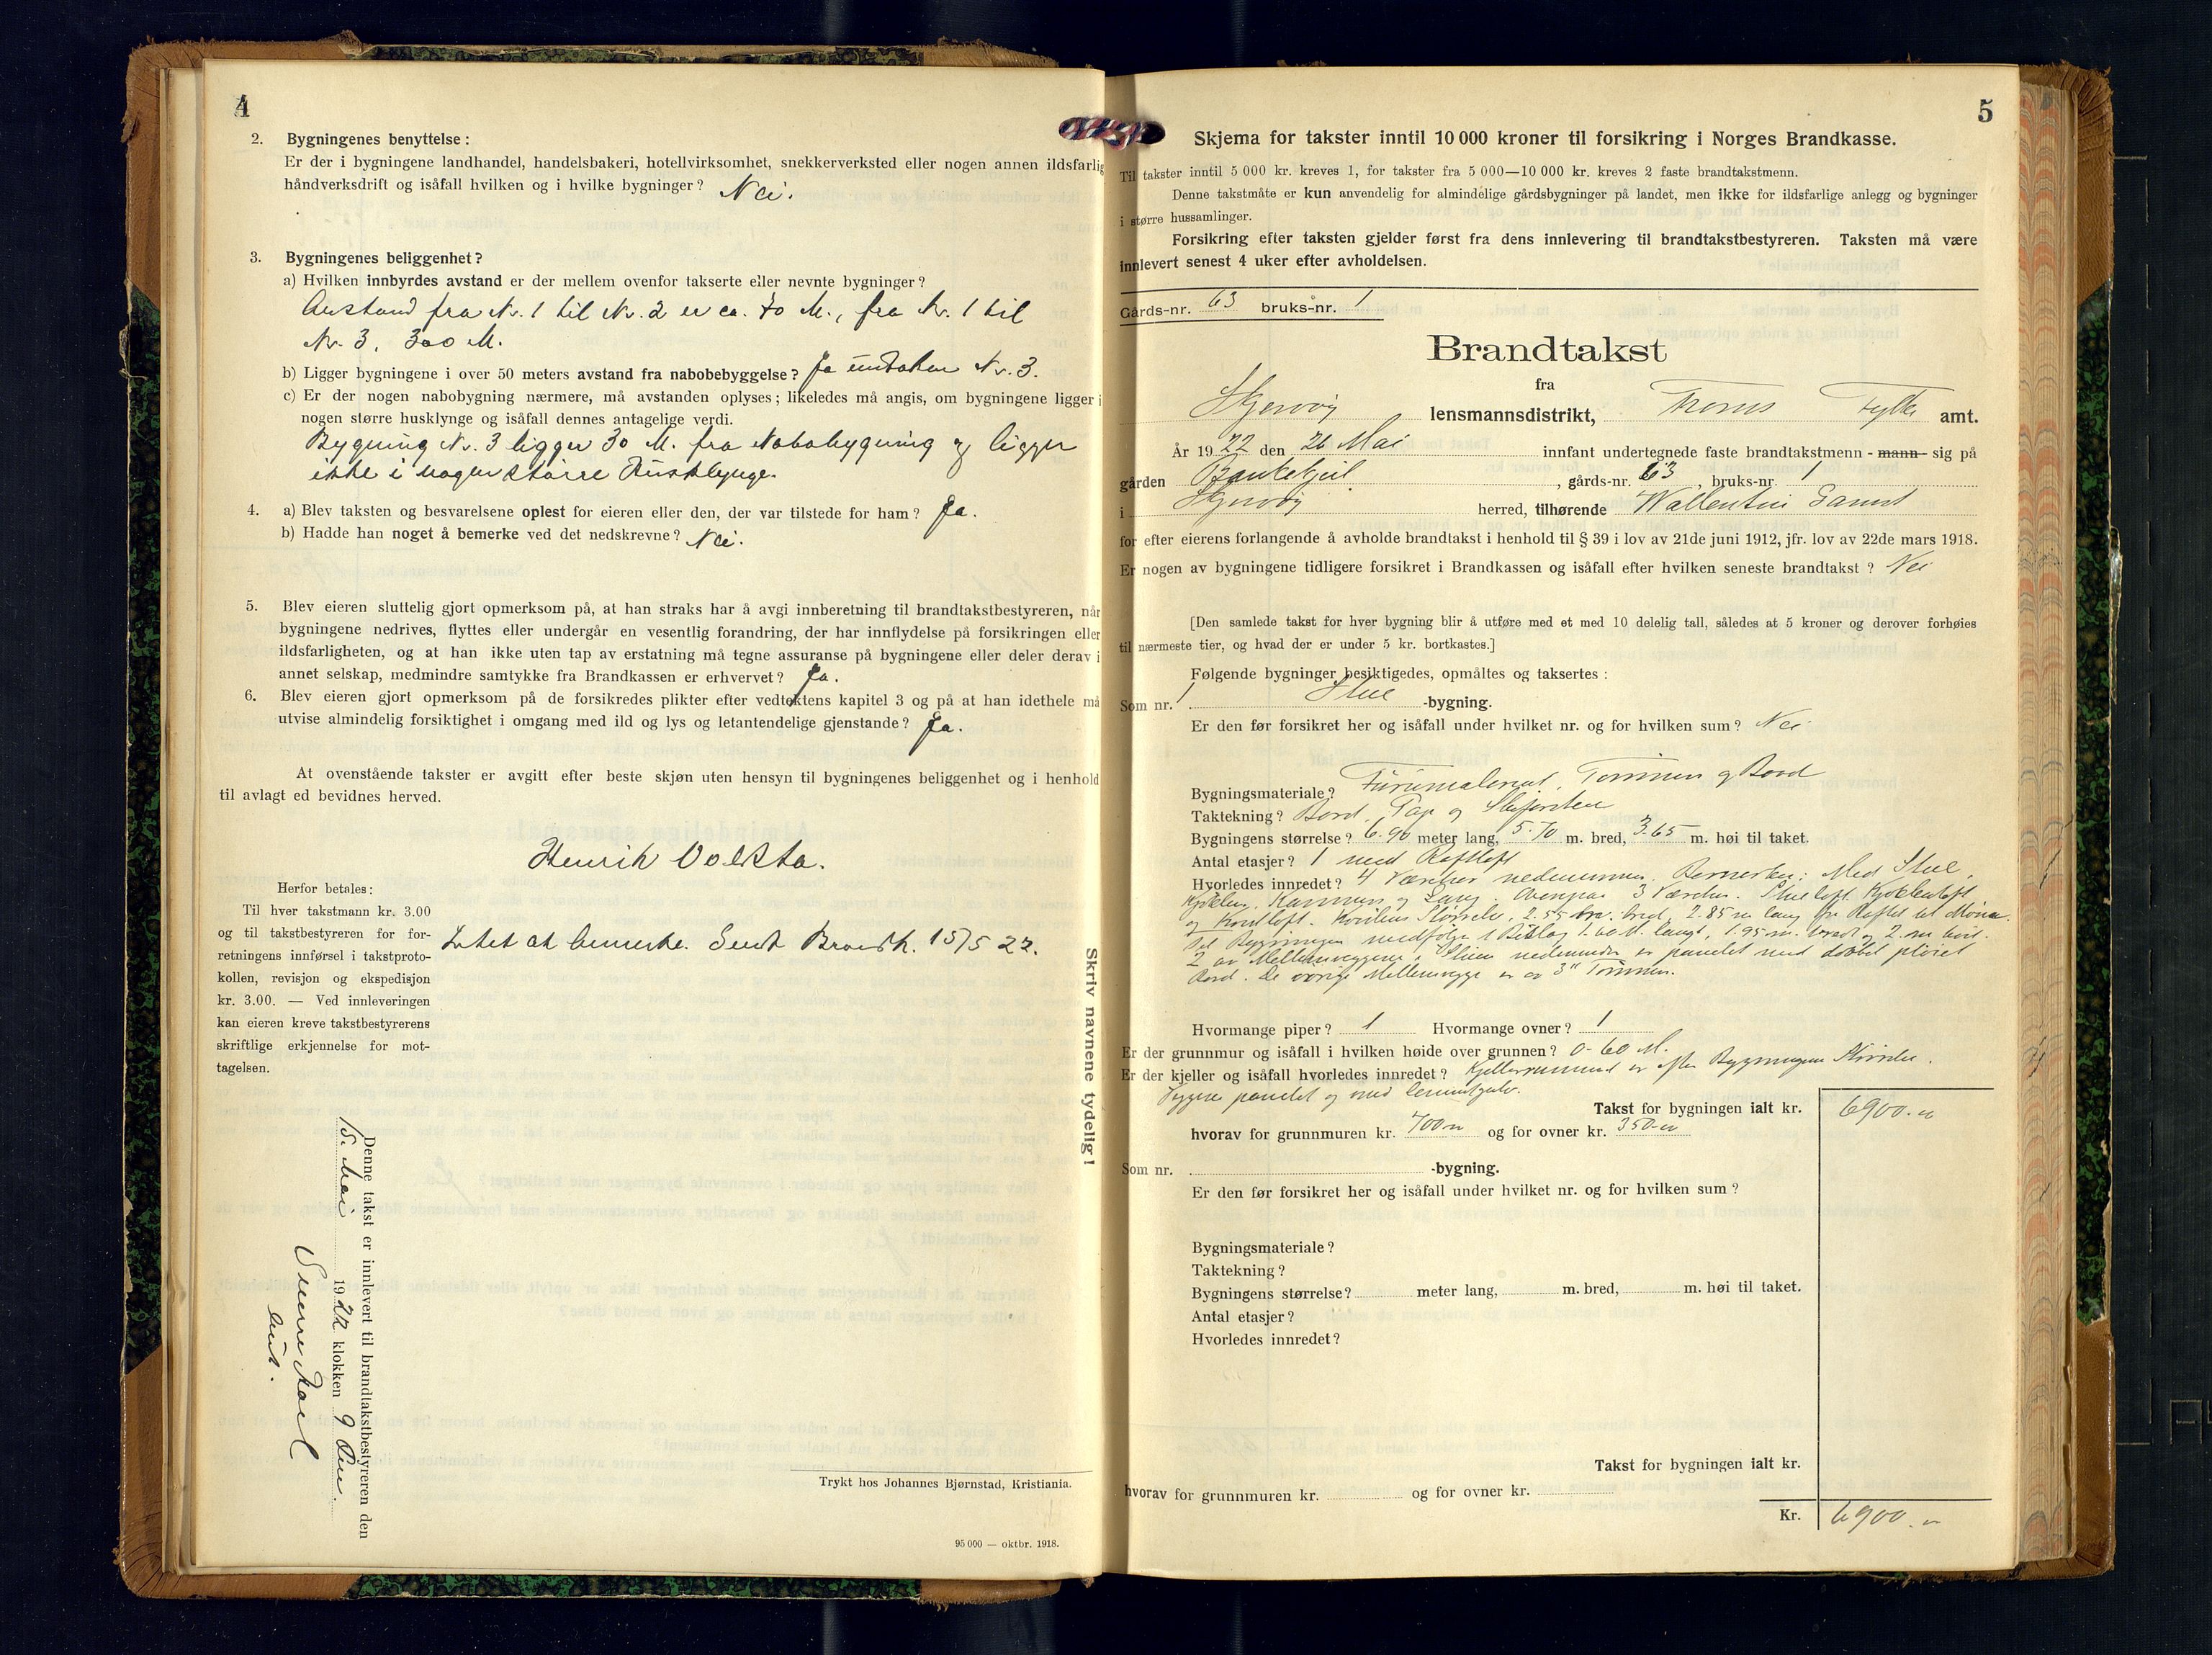 4
2. Bygningenes benyttelse :
Er der i bygningene landhandel, handelsbakeri, hotellvirksomhet, snekkerverksted eller nogen annen ildsfarlig
håndverksdrift og isåfall hvilken og i hvilke bygninger? Nei.
3. Bygningenes beliggenhet?
a) Hvilken innbyrdes avstand er der mellem ovenfor takserte eller nevnte bygninger?
Avstand fra Nr. 1 til Nr. 2 er ca. 70 M., fra Nr. 1 til
Nr. 3, 300 M.
b) Ligger bygningene i over 50 meters avstand fra nabobebyggelse? Ja untaken Nr. 3.
c) Er der nogen nabobygning nærmere, må avstanden oplyses; likeledes må angis, om bygningene ligger i
nogen større husklynge og isåfall dennes antagelige verdi.
Bygning Nr. 3 ligger 30 M. fra Nabobygning og ligger
ikke i nogen større Husklynge.
4. a) Blev taksten og besvarelsene oplest for eieren eller den, der var tilstede for ham? Ja.
b) Hadde han noget å bemerke ved det nedskrevne? Nei.
5. Blev eieren sluttelig gjort opmerksom på, at han straks har å avgi innberetning til brandtakstbestyreren, når
bygningene nedrives, flyttes eller undergår en vesentlig forandring, der har innflydelse på forsikringen eller
ildsfarligheten, og at han ikke uten tap av erstatning må tegne assuranse på bygningene eller deler derav i
annet selskap, medmindre samtykke fra Brandkassen er erhvervet? Ja.
6. Blev eieren gjort opmerksom på de forsikredes plikter efter vedtektens kapitel 3 og på at han idethele må
utvise almindelig forsiktighet i omgang med ild og lys og letantendelige gjenstande? Ja.
At ovenstående takster er avgitt efter beste skjøn uten hensyn til bygningenes beliggenhet og i henhold
til avlagt ed bevidnes herved.
Henrik Volsta.
Herfor betales:
Til hver takstmann kr. 3.00
og til takstbestyreren for for-
retningens innførsel i takstproto-
kollen, revisjon og ekspedisjon
kr. 3.00. — Ved innleveringen
kan eieren kreve takstbestyrerens
skriftlige erkjennelse for mot-
tagelsen.
Intet at bemerke. Sendt 15/5 22.
Skriv navnene tydelig!
Denne takst er innlevert til brandtakstbestyreren den
15. Mai 1922 klokken 9
Trykt hos Johannes Bjørnstad, Kristiania.
95 000 — oktbr. 1918.
5
Skjema for takster inntil 10 000 kroner til forsikring i Norges Brandkasse.
Til takster inntil 5 000 kr. kreves 1, for takster fra 5 000—10 000 kr. kreves 2 faste brandtakstmenn.
Denne takstmåte er kun anvendelig for almindelige gårdsbygninger på landet, men ikke for ildsfarlige anlegg og bygninger
i større hussamlinger.
Forsikring efter taksten gjelder først fra dens innlevering til brandtakstbestyreren. Taksten må være
innlevert senest 4 uker efter avholdelsen.
Gårds-nr. 63 bruks-nr. 1
Brandtakst
fra
Skjervøy lensmannsdistrikt, Troms Fylke amt.
År 1922 den 26 Mai innfant undertegnede faste brandtakstmenn - mann - sig på
gården Bankekeil, gårds-nr. 63, bruks-nr. 1
i Skjervøy herred, tilhørende Wallentin
for efter eierens forlangende å avholde brandtakst i henhold til § 39 i lov av 21de juni 1912, jfr. lov av 22de mars 1918.
Er nogen av bygningene tidligere forsikret i Brandkassen og isåfall efter hvilken seneste brandtakst ? Nei
[Den samlede takst for hver bygning blir å utføre med et med 10 delelig tall, således at 5 kroner og derover forhøies
til nærmeste tier, og hvad der er under 5 kr. bortkastes.]
Følgende bygninger besiktigedes, opmåltes og taksertes :
Som nr. 1 Stue -bygning.
Er den før forsikret her og isåfall under hvilket nr. og for hvilken sum? Nei
Bygningsmateriale? Furumaterial, Tømmer og Bord
Taktekning? Bord, Pap og Skifersten
Bygningens størrelse? 6.90 meter lang, 5.70 m. bred, 3.65 m. høi til taket.
Antal etasjer? 1 med Røstloft
Hvorledes innredet? 4 Værelser nedenunder. Bemerkn: Med Stue,
Kjøkken, Kammer og Gang. Ovenpaa 3 Værelser. Stueloft, Kjøkkenloft
og Kvistloft. Kvistens Størrelse, 2.55 bred, 2.85 m lang fra Røstet til Møna.
Til Bygningen medfølger 1 Bislag 1.60 M. langt, 1.95 m. bredt og 2. m høit.
2 av Mellemveggene i Stuen nedenunder er panelet med dobbel pløiet
Bord. De øvrige Mellemvegge er av 3" Tømmer.
Hvormange piper? 1 Hvormange ovner? 1
Er der grunnmur og isåfall i hvilken høide over grunnen? 0-60 M.
Er der kjeller og isåfall hvorledes innredet? Kjellerrummet er efter Bygningens Størrelse.
Veggene panelet og med Cementgulv.
Takst for bygningen ialt kr. 6900.-
hvorav for grunnmuren kr. 700- og for ovner kr. 350-
Som nr. -bygning.
Er den før forsikret her og isåfall under hvilket nr. og for hvilken sum ?
Bygningsmateriale ?
Taktekning ?
Bygningens størrelse? meter lang, m. bred, m. høi til taket.
Antal etasjer ?
Hvorledes innredet ?
Takst for bygningen ialt kr.
hvorav for grunnmuren kr. og for ovner kr.
Kr. 6900.-